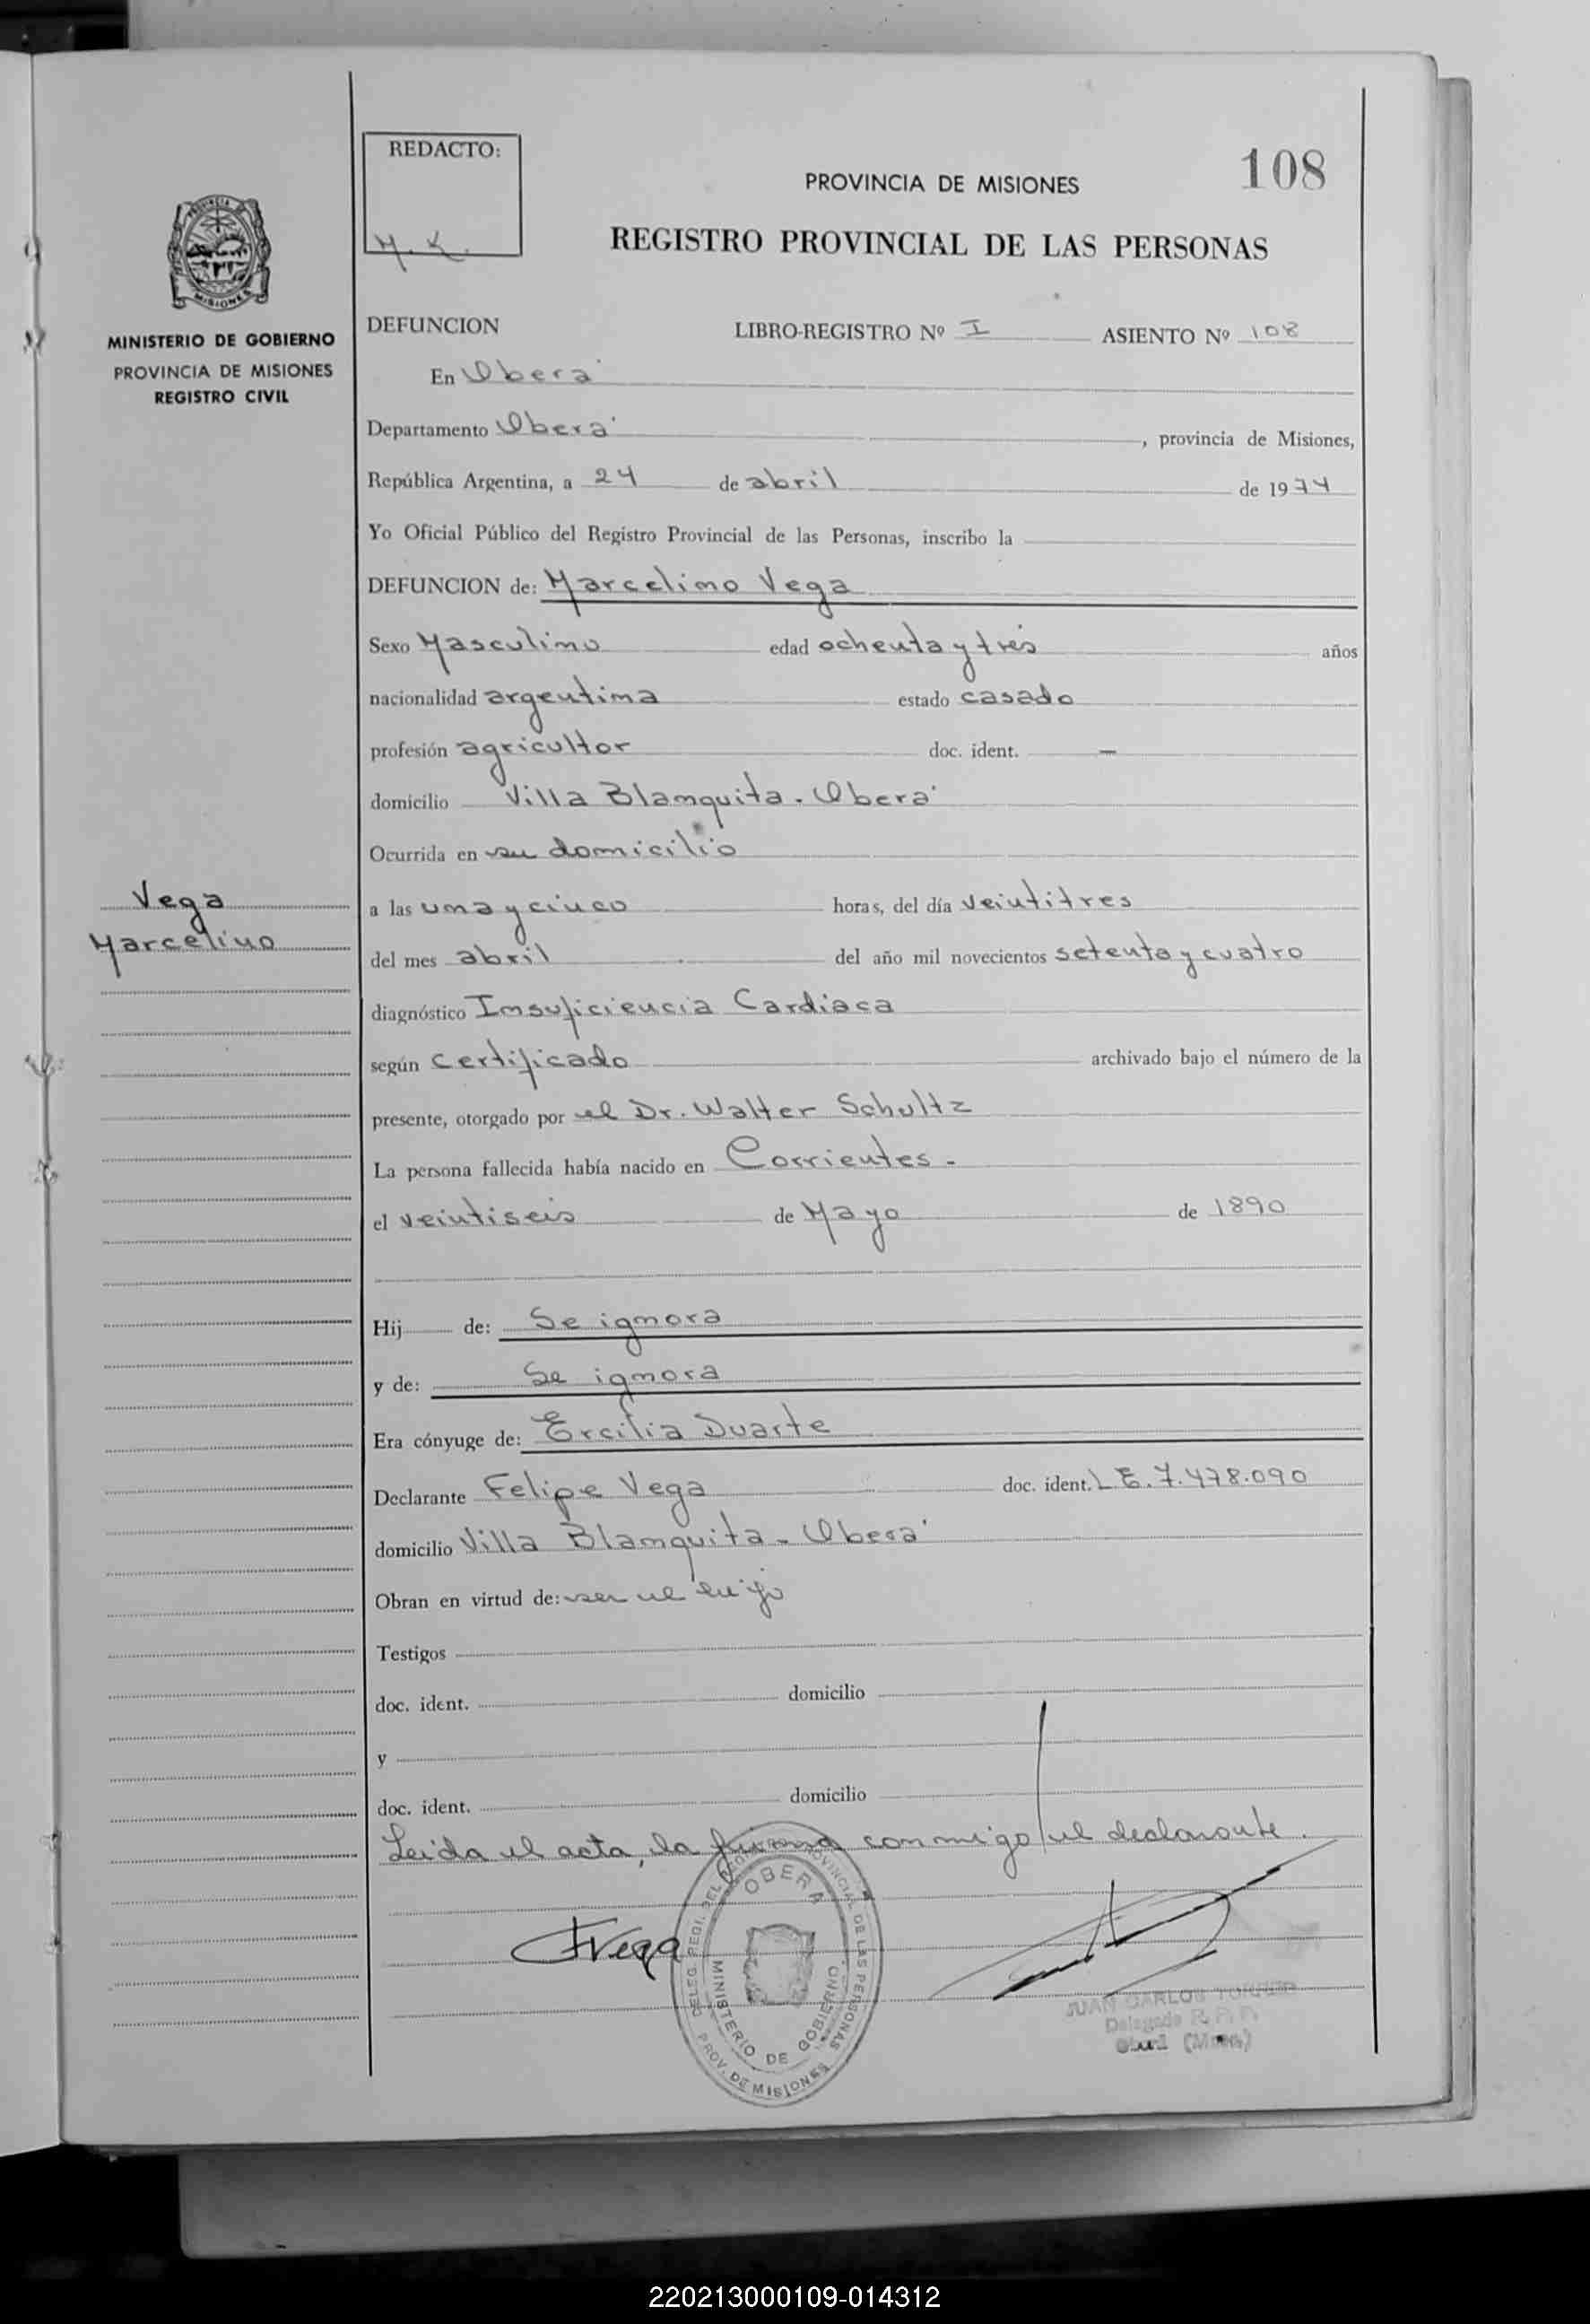 REDACTO:
M. K.
PROVINCIA DE MISIONES
108
REGISTRO PROVINCIAL DE LAS PERSONAS
PROVINCIA DE
MISIONES
MINISTERIO DE GOBIERNO
PROVINCIA DE MISIONES
REGISTRO CIVIL
DEFUNCION LIBRO-REGISTRO Nº I ASIENTO Nº 108
En Oberá
Departamento Oberá, provincia de Misiones,
República Argentina, a 24 de abril de 1974
Yo Oficial Público del Registro Provincial de las Personas, inscribo la
DEFUNCION de: Marcelino Vega
Sexo Masculino edad ochenta y trés años
nacionalidad argentina estado casado
profesión agricultor doc. ident. —
domicilio Villa Blanquita - Oberá
Ocurrida en su domicilio
Vega
Marcelino
a las una y cinco horas, del día veintitres
del mes abril del año mil novecientos setenta y cuatro
diagnóstico Insuficiencia Cardiaca
según certificado archivado bajo el número de la
presente, otorgado por el Dr. Walter Schultz
La persona fallecida había nacido en Corrientes -
el veintiseis de Mayo de 1890
Hij de: Se ignora
y de: Se ignora
Era cónyuge de: Ercilia Duarte
Declarante Felipe Vega doc. ident. L E. 7.478.090
domicilio Villa Blanquita - Oberá
Obran en virtud de: ser el hijo
Testigos
doc. ident. domicilio
y
doc. ident. domicilio
Leida el acta, la firma conmigo el declarante.
FVega
OBERA
MINISTERIO DE GOBIERNO
PROVINCIAL DE LAS PERSONAS
PROV. DE MISIONES
JUAN CARLOS
Delegado R. P. P.
Oberá (Mnes)
220213000109-014312